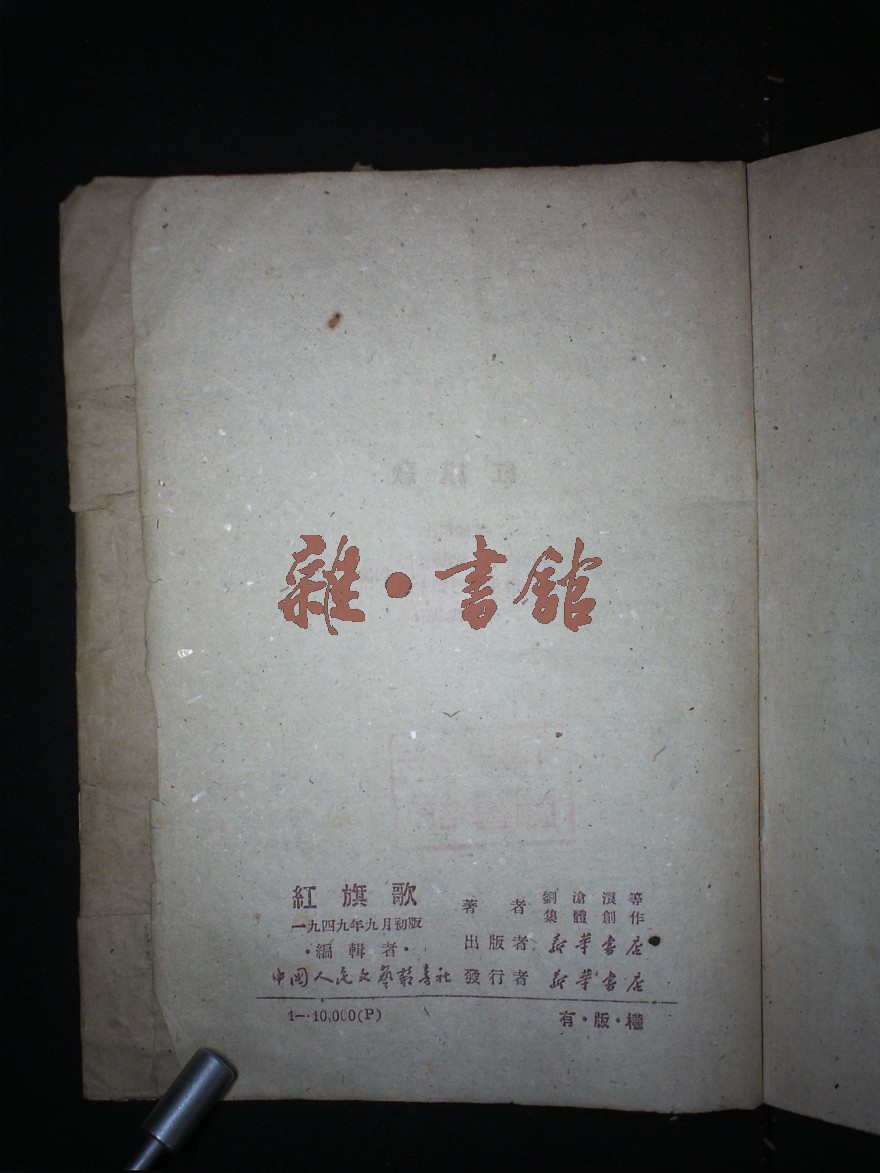 雜·書館
紅旗歌
一九四九年九月初版
·編輯者·
中國人民文藝叢書社
著者 劉滄浪等
集體創作
出版者 新華書店
發行者 新華書店
1—10,000(P)
有·版·權